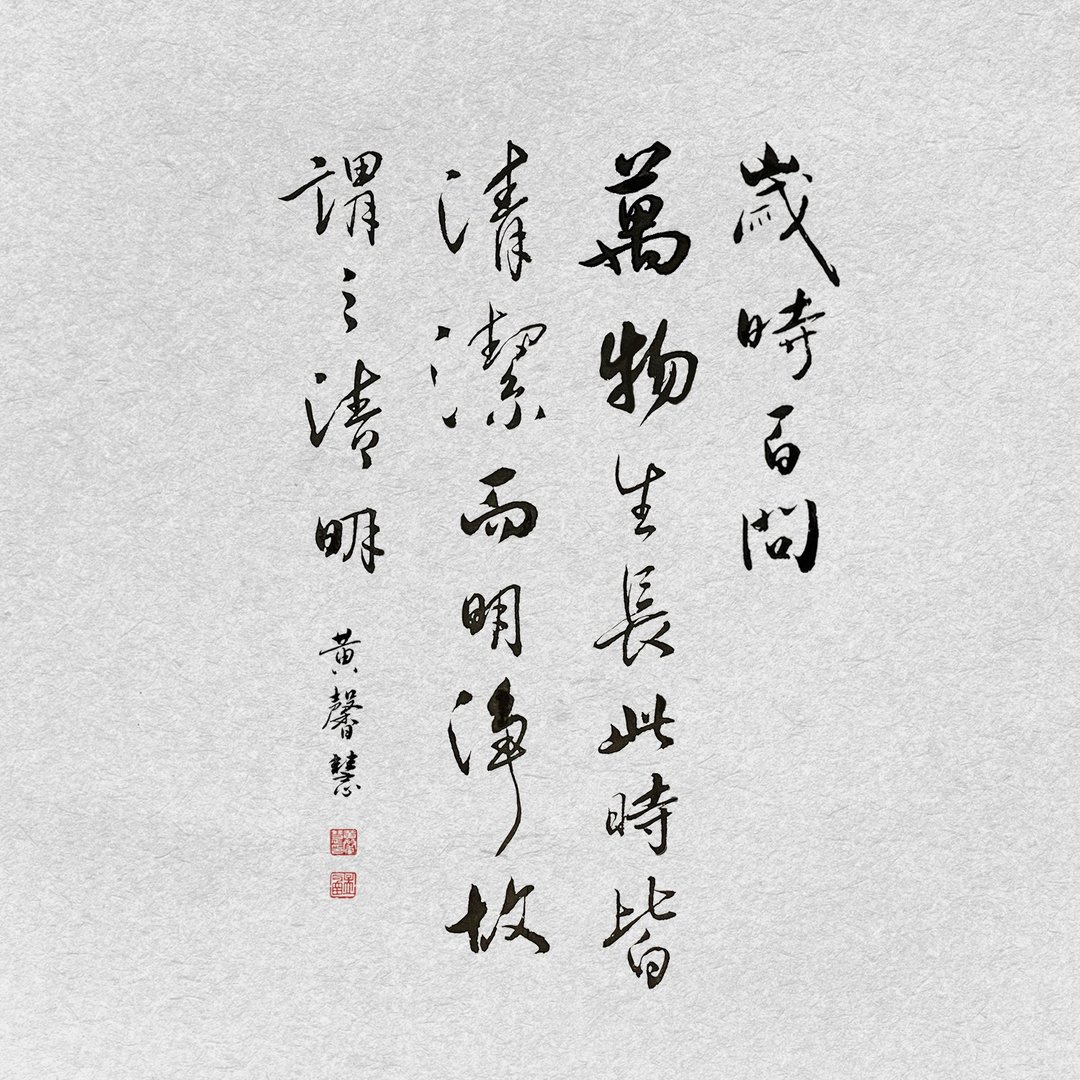 歲時百問
萬物生長此時皆
清潔而明淨故
謂之清明
黄馨慧